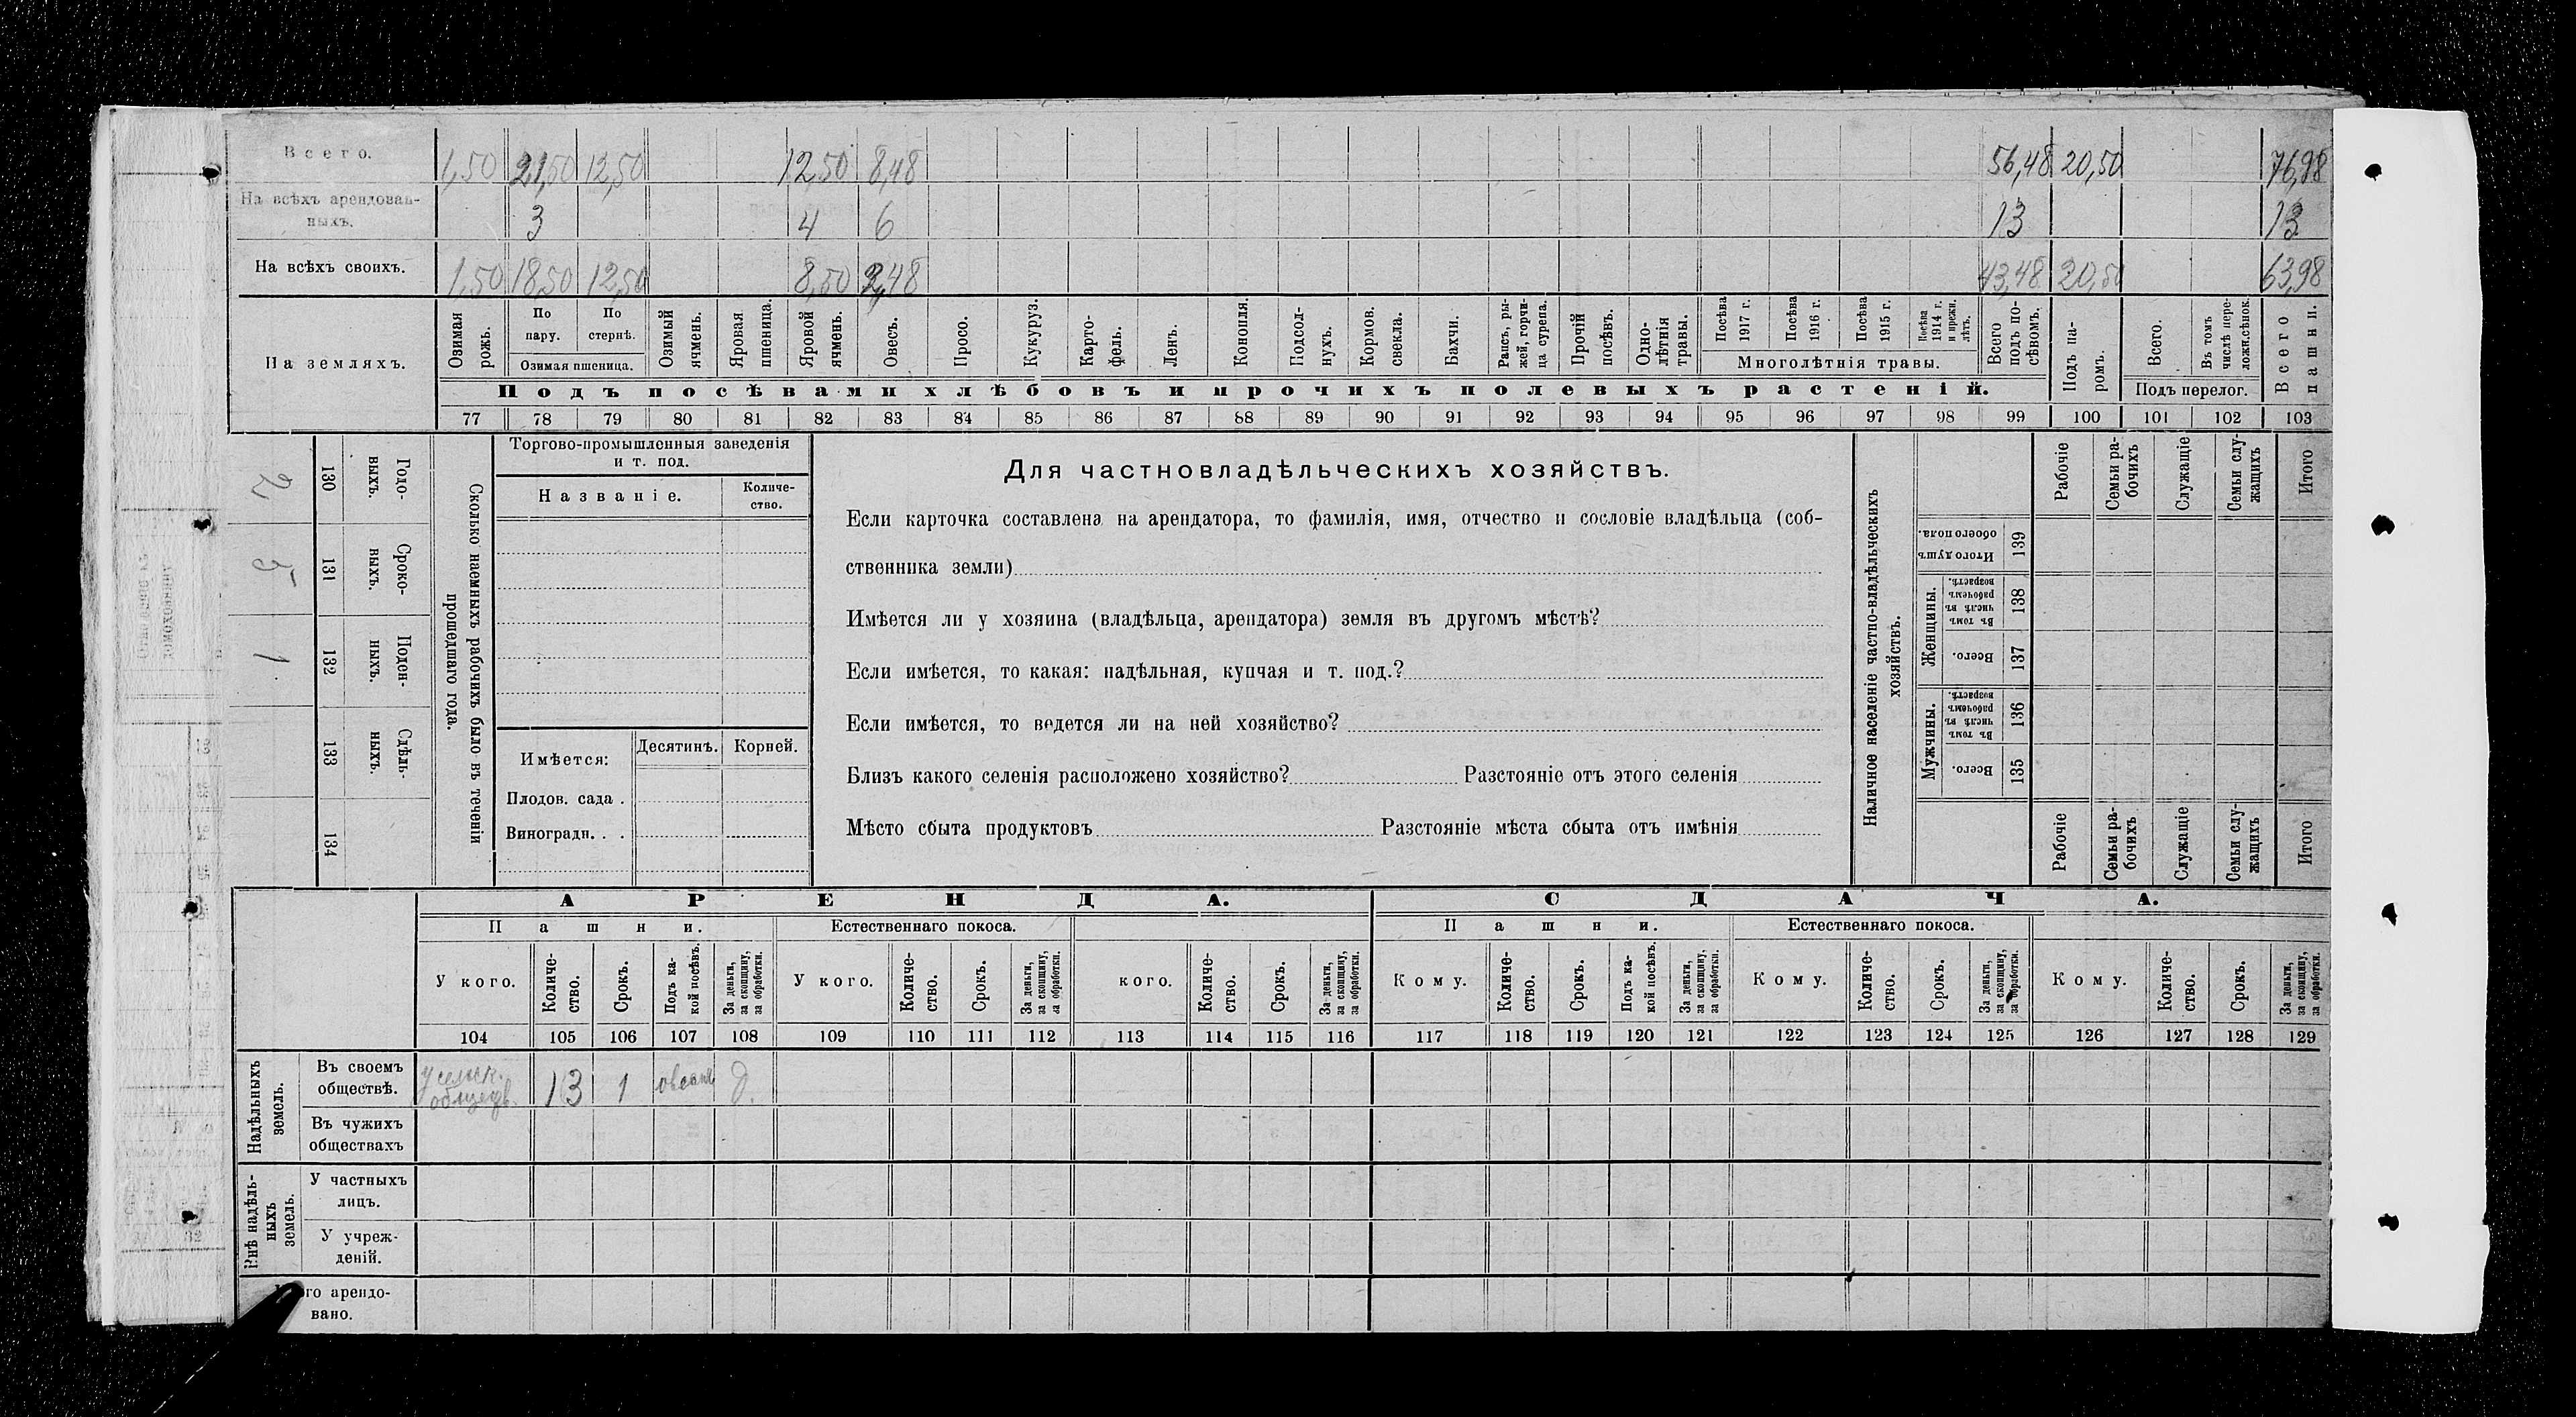 Всего. 1,50 21,50 12,50 12,50 8,48 56,48 20,50 76,98
На всѣхъ арендован-
ныхъ. 3 4 6 13 13
На всѣхъ своихъ. 1,50 18,50 12,50 8,50 2,48 43,48 20,50 63,98
На земляхъ.
Озимая рожь.
По пару.
По стернѣ.
Озимая пшеница.
Озимый ячмень.
Яровая пшеница.
Яровой ячмень.
Овесъ.
Просо.
Кукуруз.
Карто-
фель.
Ленъ.
Конопля.
Подсол-
нухъ.
Кормов.
свекла.
Бахчи.
Рапсъ, ры-
жей, горчи-
ца сурепа.
Прочій
посѣвъ.
Одно-
лѣтнія
травы.
Посѣва
1917 г.
Посѣва
1916 г.
Посѣва
1915 г.
Посѣва
1914 г.
и прежн.
лѣтъ.
Многолѣтнія травы.
Всего
подъ по-
сѣвомъ.
Подъ па-
ромъ.
Всего.
Въ томъ
числѣ пере-
ложн.сѣнок.
Подъ перелог.
Всего
пашни.
Подъ посѣвами хлѣбовъ и прочихъ полевыхъ растеній.
77 78 79 80 81 82 83 84 85 86 87 88 89 90 91 92 93 94 95 96 97 98 99 100 101 102 103
2 130 Годо-
выхъ.
5 131 Сроко-
выхъ.
1 132 Поден-
ныхъ.
133 Сдѣль-
ныхъ.
134
Сколько наемныхъ рабочихъ было въ теченіи
прошедшаго года.
Торгово-промышленныя заведенія
и т. под.
Названіе.
Количе-
ство.
Имѣется:
Десятинъ. Корней.
Плодов. сада .
Виноградн. . .
Для частновладѣльческихъ хозяйствъ.
Если карточка составлена на арендатора, то фамилія, имя, отчество и сословіе владѣльца (соб-
ственника земли)
Имѣется ли у хозяина (владѣльца, арендатора) земля въ другомъ мѣстѣ?
Если имѣется, то какая: надѣльная, купчая и т. под.?
Если имѣется, то ведется ли на ней хозяйство?
Близъ какого селенія расположено хозяйство? Разстояніе отъ этого селенія
Мѣсто сбыта продуктовъ Разстояніе мѣста сбыта отъ имѣнія
Наличное населеніе частно-владѣльческихъ
хозяйствъ.
Рабочіе
Семьи ра-
бочихъ
Служащіе
Семьи слу-
жащихъ
Итого
Итого душъ
обоего пола.
139
Женщины.
Въ томъ
числѣ въ
рабочемъ
возрастѣ.
138
Всего.
137
Мужчины.
Въ томъ
числѣ въ
рабочемъ
возрастѣ.
136
Всего.
135
Рабочіе
Семьи ра-
бочихъ
Служащіе
Семьи слу-
жащихъ
Итого
АРЕНДА. СДАЧА.
Пашни. Естественнаго покоса. Пашни. Естественнаго покоса.
У кого.
Количе-
ство.
Срокъ.
Подъ ка-
кой посѣвъ.
За деньги,
за скопщину,
за обработки.
У кого.
Количе-
ство.
Срокъ.
За деньги,
за скопщину,
за обработки.
кого.
Количе-
ство.
Срокъ.
За деньги,
за скопщину,
за обработки.
Кому.
Количе-
ство.
Срокъ.
Подъ ка-
кой посѣвъ.
За деньги,
за скопщину,
за обработки.
Кому.
Количе-
ство.
Срокъ.
За деньги,
за скопщину,
за обработки.
Кому.
Количе-
ство.
Срокъ.
За деньги,
за скопщину,
за обработки.
104 105 106 107 108 109 110 111 112 113 114 115 116 117 118 119 120 121 122 123 124 125 126 127 128 129
Надѣльныхъ
земель.
Въ своемъ
обществѣ. 13 1 д.
Въ чужихъ
обществахъ
Внѣ надѣль-
ныхъ
земель.
У частныхъ
лицъ.
У учреж-
деній.
го арендо-
вано.